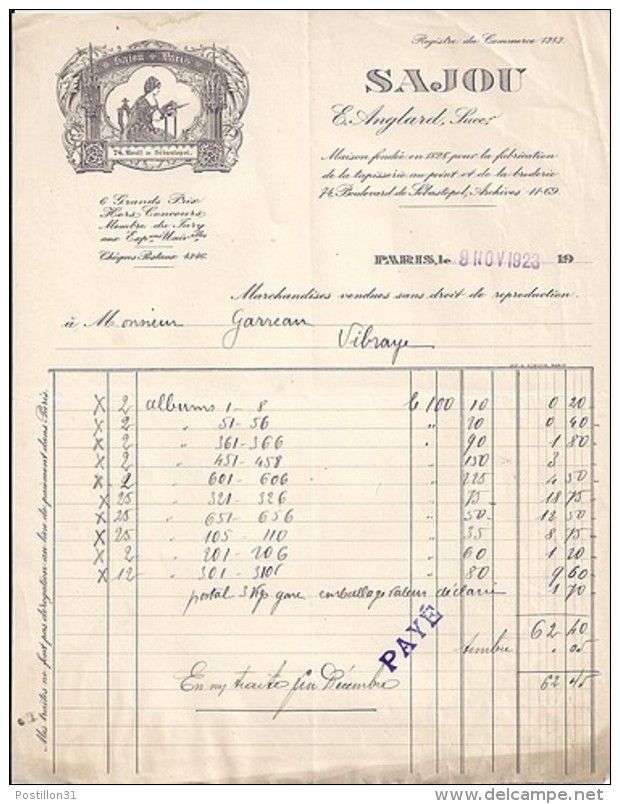 Registre du Commerce 1212.
Sajou Paris
74, Boulᵈ de Sébastopol.
SAJOU
E. Anglard, Succʳ
Maison fondée en 1828 pour la fabrication
de la tapisserie au point et de la broderie
74, Boulevard de Sébastopol, Archives 11-69
6 Grands Prix
Hors Concours
Membre du Jury
aux Expᵒⁿˢ Univᵉˡˡᵉˢ
Chèques Postaux 4246.
PARIS, le 9 NOV 1923 19
Marchandises vendues sans droit de reproduction.
à Monsieur Garreau
Vibraye
X 2 albums 1 - 8 le 100 10 0 20
X 2 " 51 - 56 " 20 0 40
X 2 " 361 - 366 " 90 1 80
X 2 " 451 - 458 " 150 3
X 2 " 601 - 606 " 225 4 50
X 25 " 321 - 326 " 75 18 75
X 25 " 651 - 656 " 50 12 50
X 25 " 105 - 110 " 35 8 75
X 2 " 201 - 206 " 60 1 20
X 12 " 301 - 310 " 80 9 60
postal 3 Kgs gare emballage valeur déclarée 1 70
62 40
timbre . 05
62 45
PAYÉ
En m/ traite fin Décembre
Mes traites ne font pas dérogation au lieu de paiement dans Paris.
Postillon31
www.delcampe.net